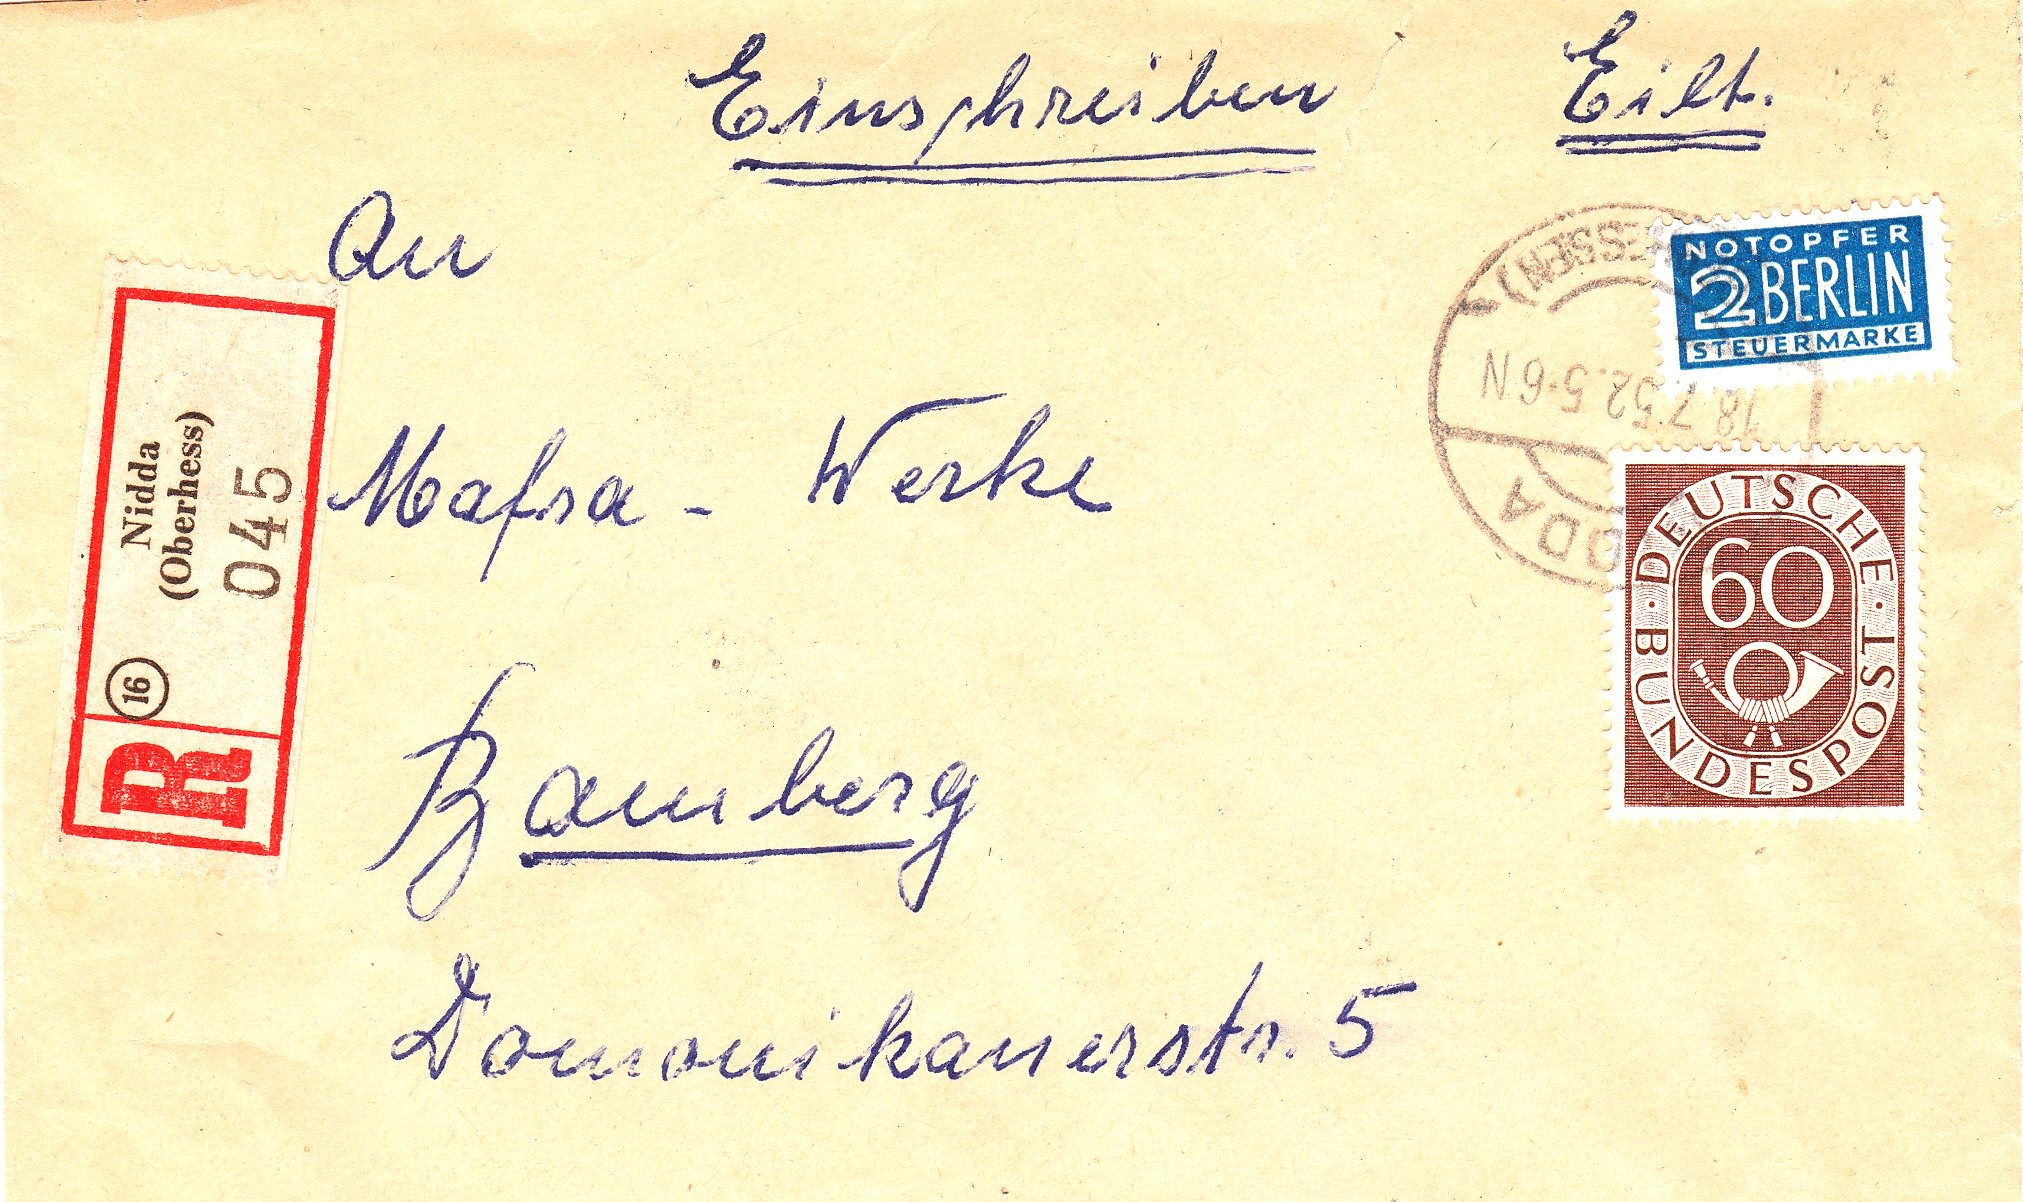 Einschreiben Eilt.
An
Mafra - Werke
Bamberg
Domonikanerstr. 5
R
16
Nidda
(Oberhess)
045
HESSEN)
18.7.52.5-6N
DDA
NOTOPFER
2 BERLIN
STEUERMARKE
DEUTSCHE · BUNDESPOST ·
60